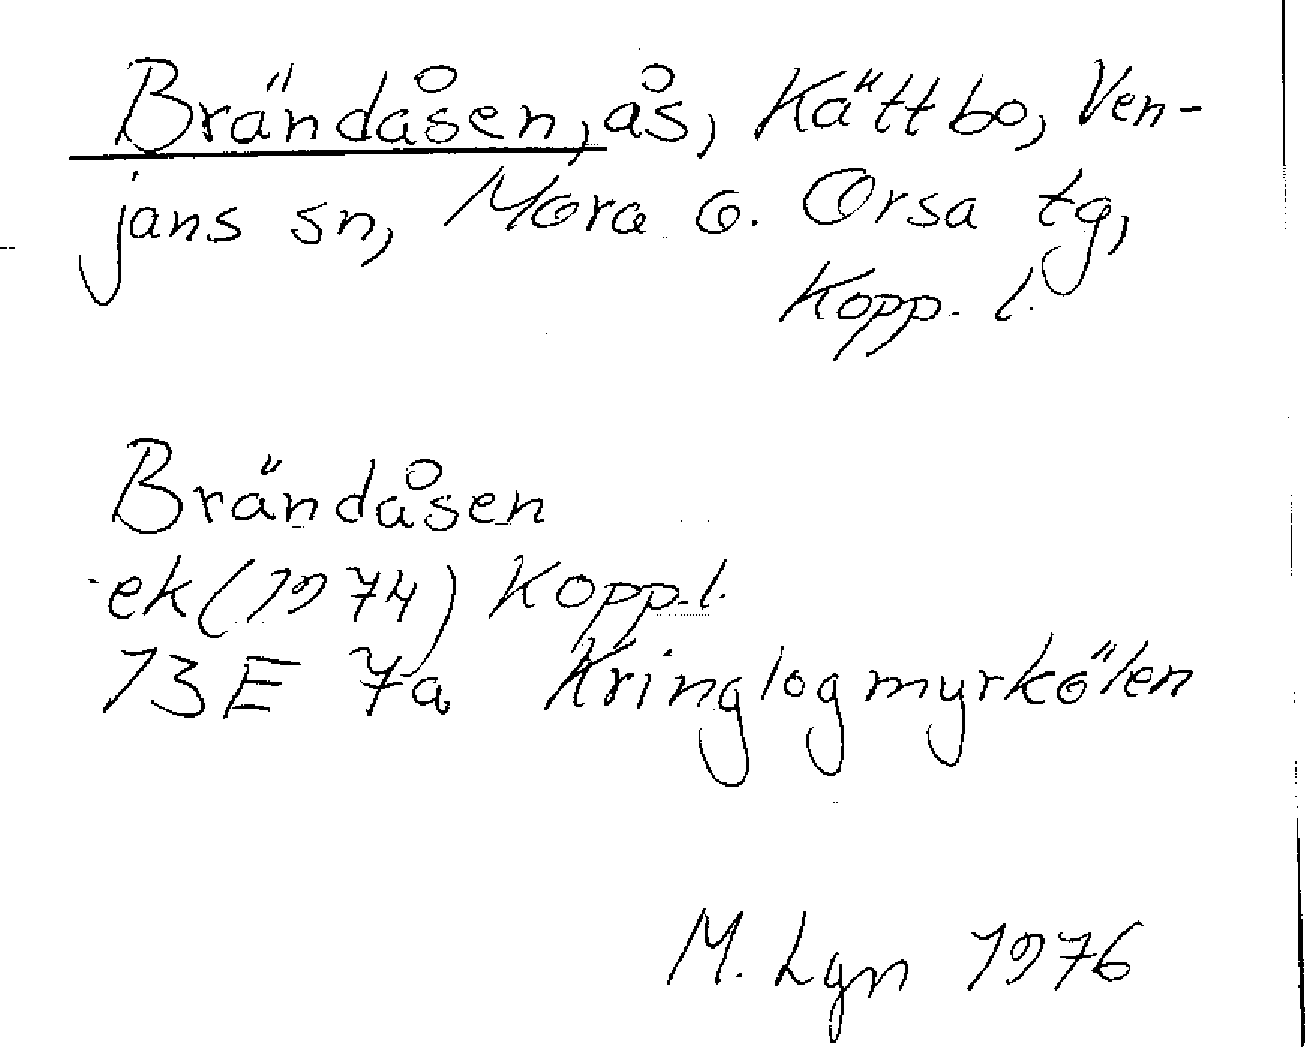 Brändåsen, ås, Kättbo, Ven-
jans sn, Mora o. Orsa tg,
Kopp. l.
Brändåsen
ek (1974) Kopp. l.
13E 7a Kringlogmyrkölen
M. Lgn 1976